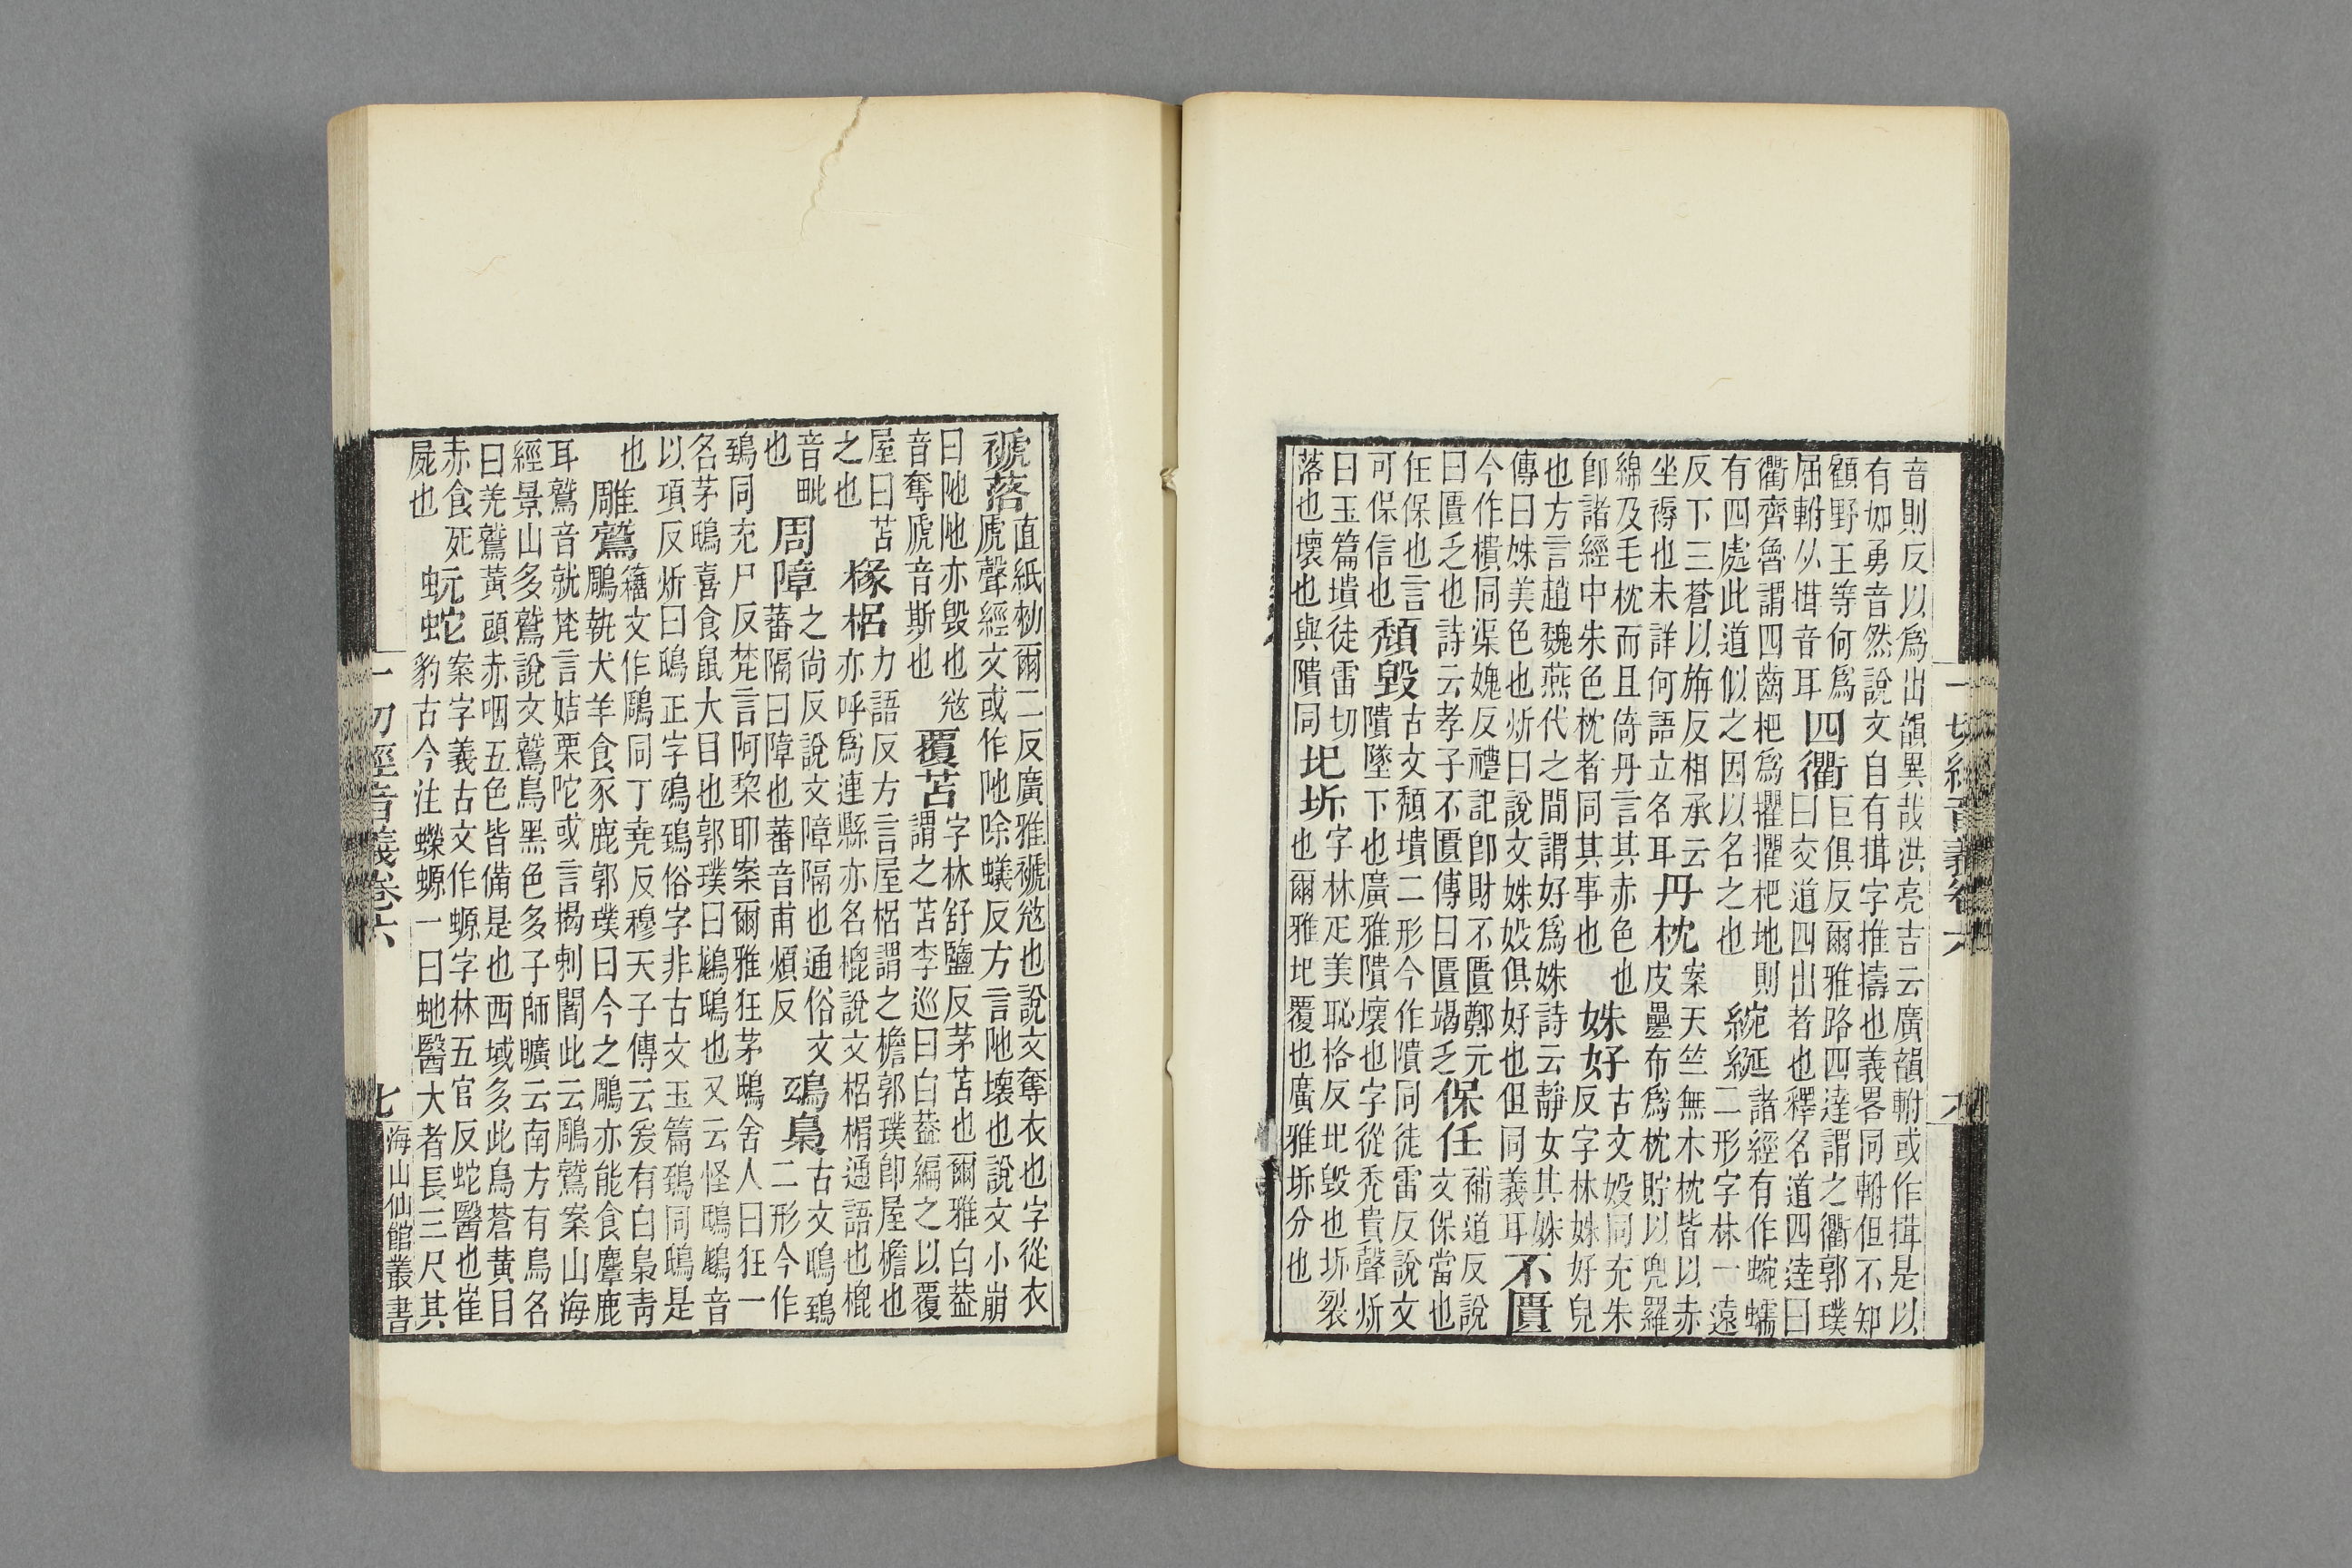 音則反以爲出韻異哉洪亮吉云廣韻軵或作搑是以
有如勇音然說文自有搑字推擣也義畧同軵但不知
顧野王等何爲
屈軵从搑音耳
四衢
巨俱反爾雅路四達謂之衢郭璞
曰交道四出者也釋名道四達曰
衢齊魯謂四齒杷爲欋欋杷地則
有四處此道似之因以名之也
綩綖
諸經有作蜿蠕
二形字林一遠
反下三蒼以旃反相承云
坐褥也未詳何語立名耳
丹枕
案天竺無木枕皆以赤
皮㲲布爲枕貯以兜羅
綿及毛枕而且倚丹言其赤色也
卽諸經中朱色枕者同其事也
姝好
古文㚩同充朱
反字林姝好皃
也方言趙魏燕代之間謂好爲姝詩云靜女其姝
傳曰姝美色也炘曰說文姝㚩俱好也但同義耳
不匱
今作樻同渠媿反禮記卽財不匱鄭元
曰匱乏也詩云孝子不匱傳曰匱竭乏
保任
補道反說
文保當也
任保也言
可保信也
頽毀
古文頽墤二形今作隤同徒雷反說文
隤墜下也廣雅隤壞也字從禿貴聲炘
曰玉篇墤徒雷切
落也壞也與隤同
圯坼
字林疋美恥格反圯毀也坼裂
也爾雅圯覆也廣雅坼分也
一切經音義卷六
褫落
直紙勑爾二反廣雅褫㢮也說文奪衣也字從衣
虒聲經文或作阤除蟻反方言阤壞也說文小崩
曰阤阤亦毀也㢮
音奪虒音斯也
覆苫
字林舒鹽反茅苫也爾雅白葢
謂之苫李巡曰白葢編之以覆
屋曰苫
之也
椽梠
力語反方言屋梠謂之檐郭璞卽屋檐也
亦呼爲連縣亦名櫋說文梠楣通語也櫋
音毗
也
周障
之尚反說文障隔也通俗文
蕃隔曰障也蕃音甫煩反
鵄梟
古文鴟鵄
二形今作
鵄同充尸反梵言阿棃耶案爾雅狂茅鴟舍人曰狂一
名茅鴟喜食鼠大目也郭璞曰鶹鴟也又云怪鴟鶹音
以項反炘曰鴟正字鵄鵄俗字非古文玉篇鵄同鴟是
也
雕鷲
籒文作鵰同丁堯反穆天子傳云爰有白梟靑
鵰執犬羊食豕鹿郭璞曰今之鵰亦能食麞鹿
耳鷲音就梵言姞栗陀或言揭剌闍此云鵰鷲案山海
經景山多鷲說文鷲鳥黑色多子師曠云南方有鳥名
曰羌鷲黃頭赤咽五色皆備是也西域多此鳥蒼黃目
赤食死
屍也
蚖蛇
案字義古文作螈字林五官反蛇醫也崔
豹古今注蠑螈一曰虵醫大者長三尺其
一切經音義卷六
七
海山仙館叢書